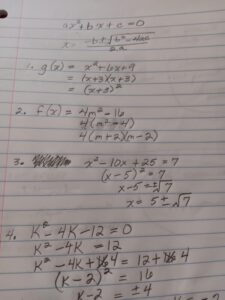 ax²+bx+c=0
x = -b±√b²-4ac / 2a
1. g(x) = x²+6x+9
= (x+3)(x+3)
= (x+3)²
2. f(x) = 4m²-16
4(m²-4)
4(m+2)(m-2)
3. x²-10x+25=7
(x-5)²=7
x-5=±√7
x=5±√7
4. K²-4K-12=0
K²-4K=12
K²-4K+4=12+4
(K-2)²=16
K-2=±4